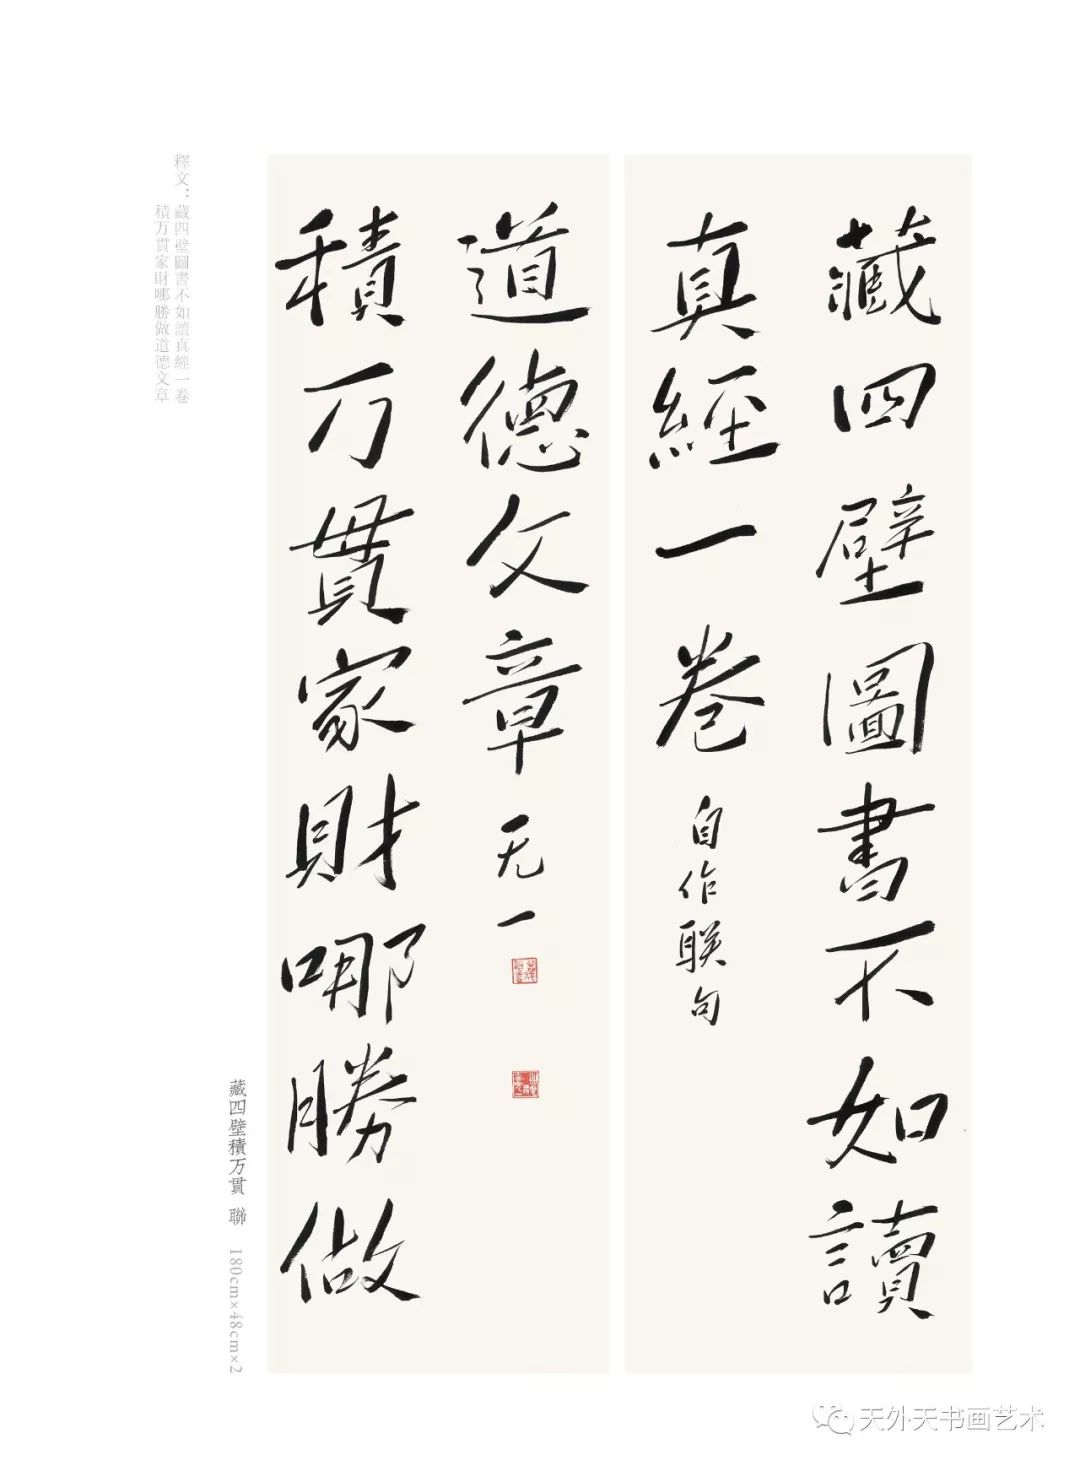 藏四壁圖書不如讀
真經一卷
自作联句
積万貫家財哪勝做
道德文章
无一
釋文：藏四壁圖書不如讀真經一卷
積万貫家財哪勝做道德文章
藏四壁積万貫 聯 180cm×48cm×2
天外天书画艺术